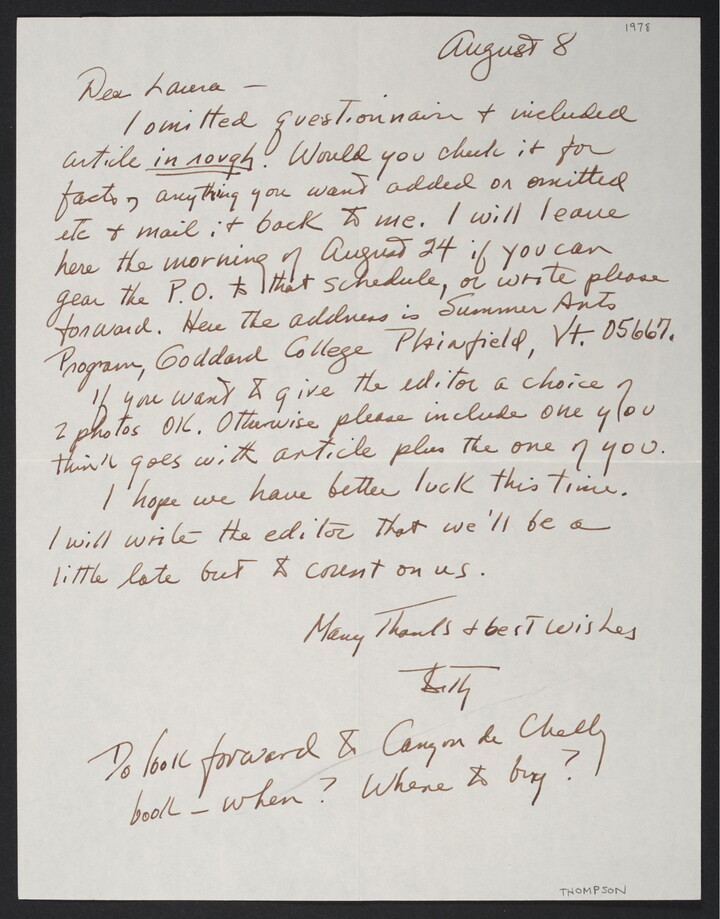 1978
August 8
Dear Laura —
I omitted questionnaire + included
article in rough. Would you check it for
facts, anything you want added or omitted
etc + mail it back to me. I will leave
here the morning of August 24 if you can
gear the P.O. to that schedule, or write please
forward. Here the address is Summer Arts
Program, Goddard College Plainfield, Vt. 05667.
If you want to give the editor a choice of
2 photos OK. Otherwise please include one you
think goes with article plus the one of you.
I hope we have better luck this time.
I will write the editor that we'll be a
little late but to count on us.
Many Thanks + best wishes
Do look forward to Canyon de Chelly
book — when? Where to buy?
THOMPSON